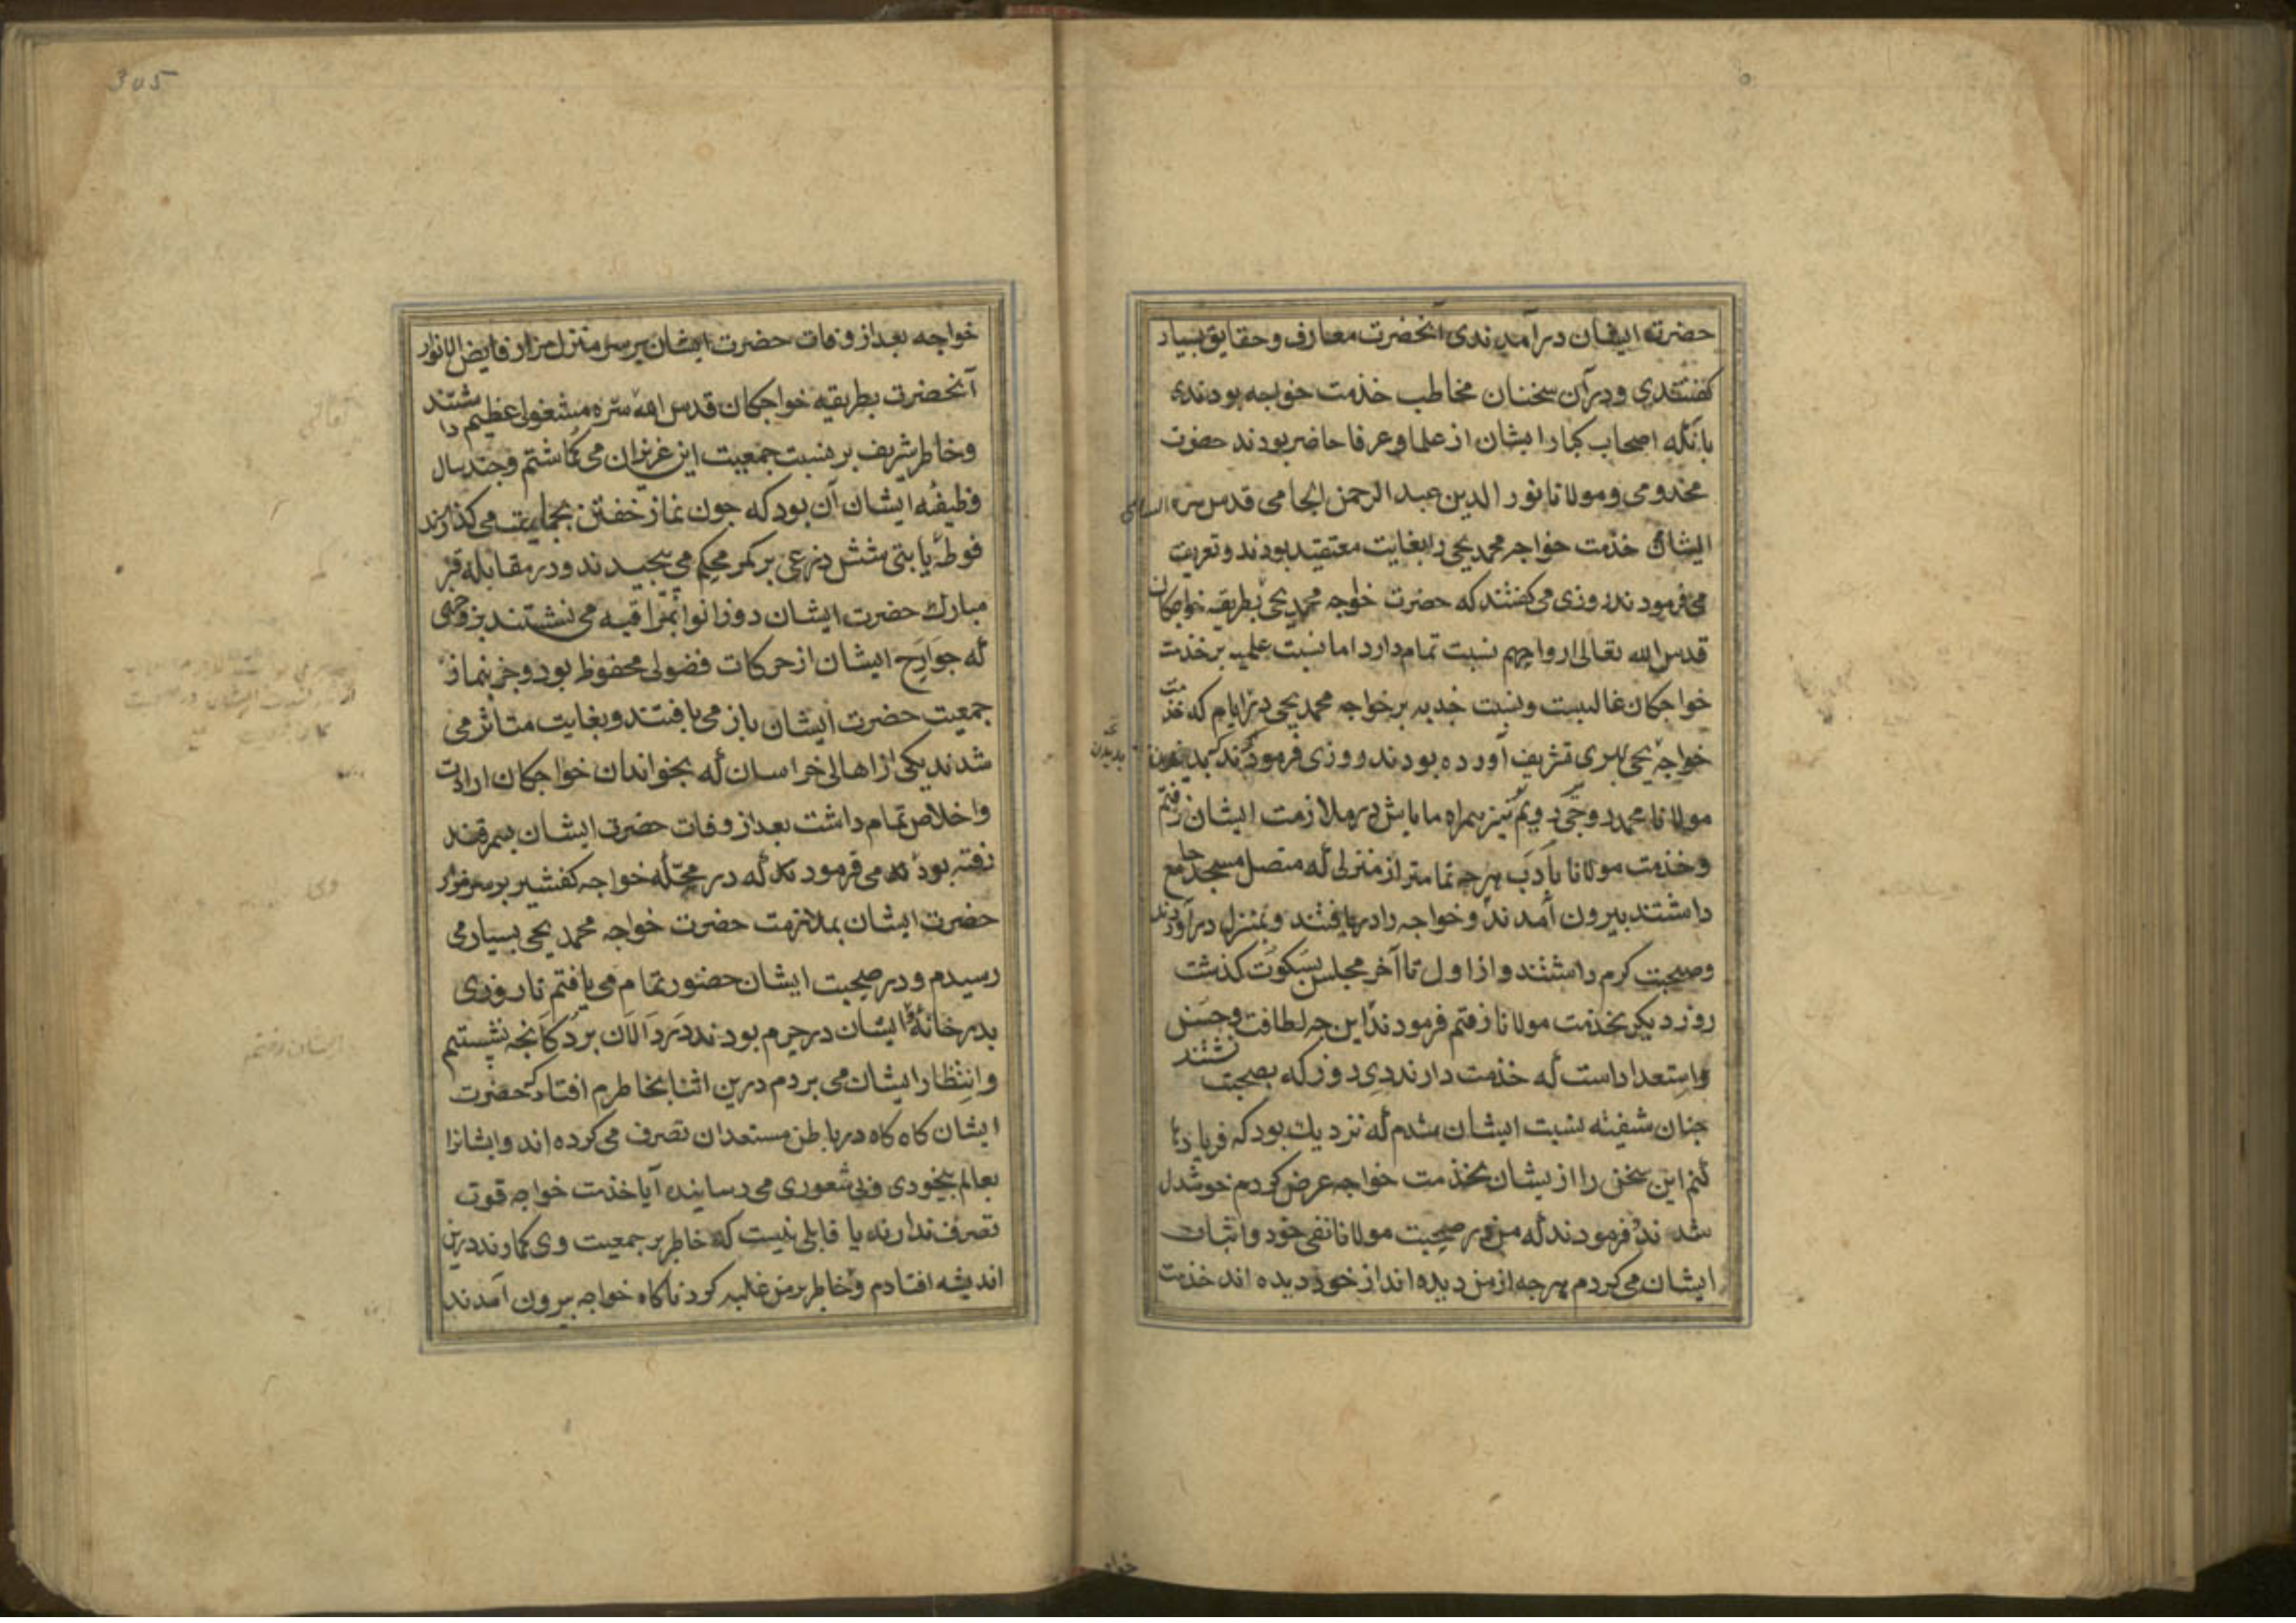 حضرت ایشان درآمدندی آنحضرت معارف و حقایق بسیار
کفتندی و درآن سخنان مخاطب خذمت خواجه بودندی
بانکه اصحاب کبار ایشان از علما و عرفا حاضر بودند حضرت
مخدومی و مولانا نور الدین عبد الرحمن الجامی قدس سره السامی
ایشان خذمت خواجه محمد یحیی را بغایت معتقد بودند و تعریف
می فرمودند روزی می کفتند که حضرت خواجه محمد یحیی بطریقه خواجکان
قدس الله تعالی ارواحهم نسبت تمام دارد اما نسبت علمیه بر خذمت
خواجکان غالبست و نسبت جذبه بر خواجه محمد یحیی در ایام که خذمت
خواجه یحیی بهری تشریف آورده بودند روزی فرمودند که بدیدن
مولانا محمد روجی رویم نیز همراه ما باش در ملازمت ایشان رفتم
و خذمت مولانا بادب هرچه تمامتر از منزلی که متصل مسجد جامع
داشتند بیرون آمدند و خواجه را دریافتند و بمنزل درآوردند
و صحبت کرم داشتند و از اول تا آخر مجلس بسکوت کذشت
روز دیکر بخذمت مولانا رفتم فرمودند این چه لطافت و حسن
و استعداد است که خذمت دارند دی روز که بصحبت نشستند
چنان شفیته نسبت ایشان شدم که نزدیك بود که فریادها
کنم این سخن را از یشان بخذمت خواجه عرض کردم خوشدل
شدند و فرمودند که من در صحبت مولانا نفی خود و اثبات
ایشان می کردم هرچه از من دیده اند از خود دیده اند خذمت
خواجه بعد از وفات حضرت ایشان بر سر منزل مزار فایض الانوار
آنحضرت بطریقه خواجکان قدس الله سره مشغولی عظیم داشتند
و خاطر شریف بر نسبت جمعیت این عزیزان می کماشتم و چند سال
وظیفه ایشان آن بود که چون نماز خفتن بجماعت می کذارند
فوطه یا بتی شش ذرعی بر کمر محکم می پیچیدند و در مقابله قبر
مبارك حضرت ایشان دو زانو بمراقبه می نشستند بر وجهی
که جوارح ایشان از حرکات فضولی محفوظ بود و جز بنماز
جمعیت حضرت ایشان باز می یافتند و بغایت متاثر می
شدند یکی از اهالی خراسان که بخواندان خواجکان ارادت
و اخلاص تمام داشت بعد از وفات حضرت ایشان بسمرقند
رفته بودند می فرمودند که در محله خواجه کفشیر بر سر مزار
حضرت ایشان بملازمت حضرت خواجه محمد یحیی بسیار می
رسیدم و در صحبت ایشان حضور تمام می یافتم تا روزی
بدر خانهٔ ایشان در حرم بودند در دالان بر دکانچه نشستیم
و انتظار ایشان می بردم درین اثنا بخاطرم افتاد که حضرت
ایشان کاه کاه در باطن مستعدان تصرف می کرده اند و ایشانرا
بعالم بیخودی و بی شعوری می رسانیده آیا خذمت خواجه قوت
تصرف ندارند یا قابلی نیست که خاطر بر جمعیت وی کمارند درین
اندیشه افتادم و خاطر بر من غلبه کرد ناکاه خواجه بیرون آمدند
305